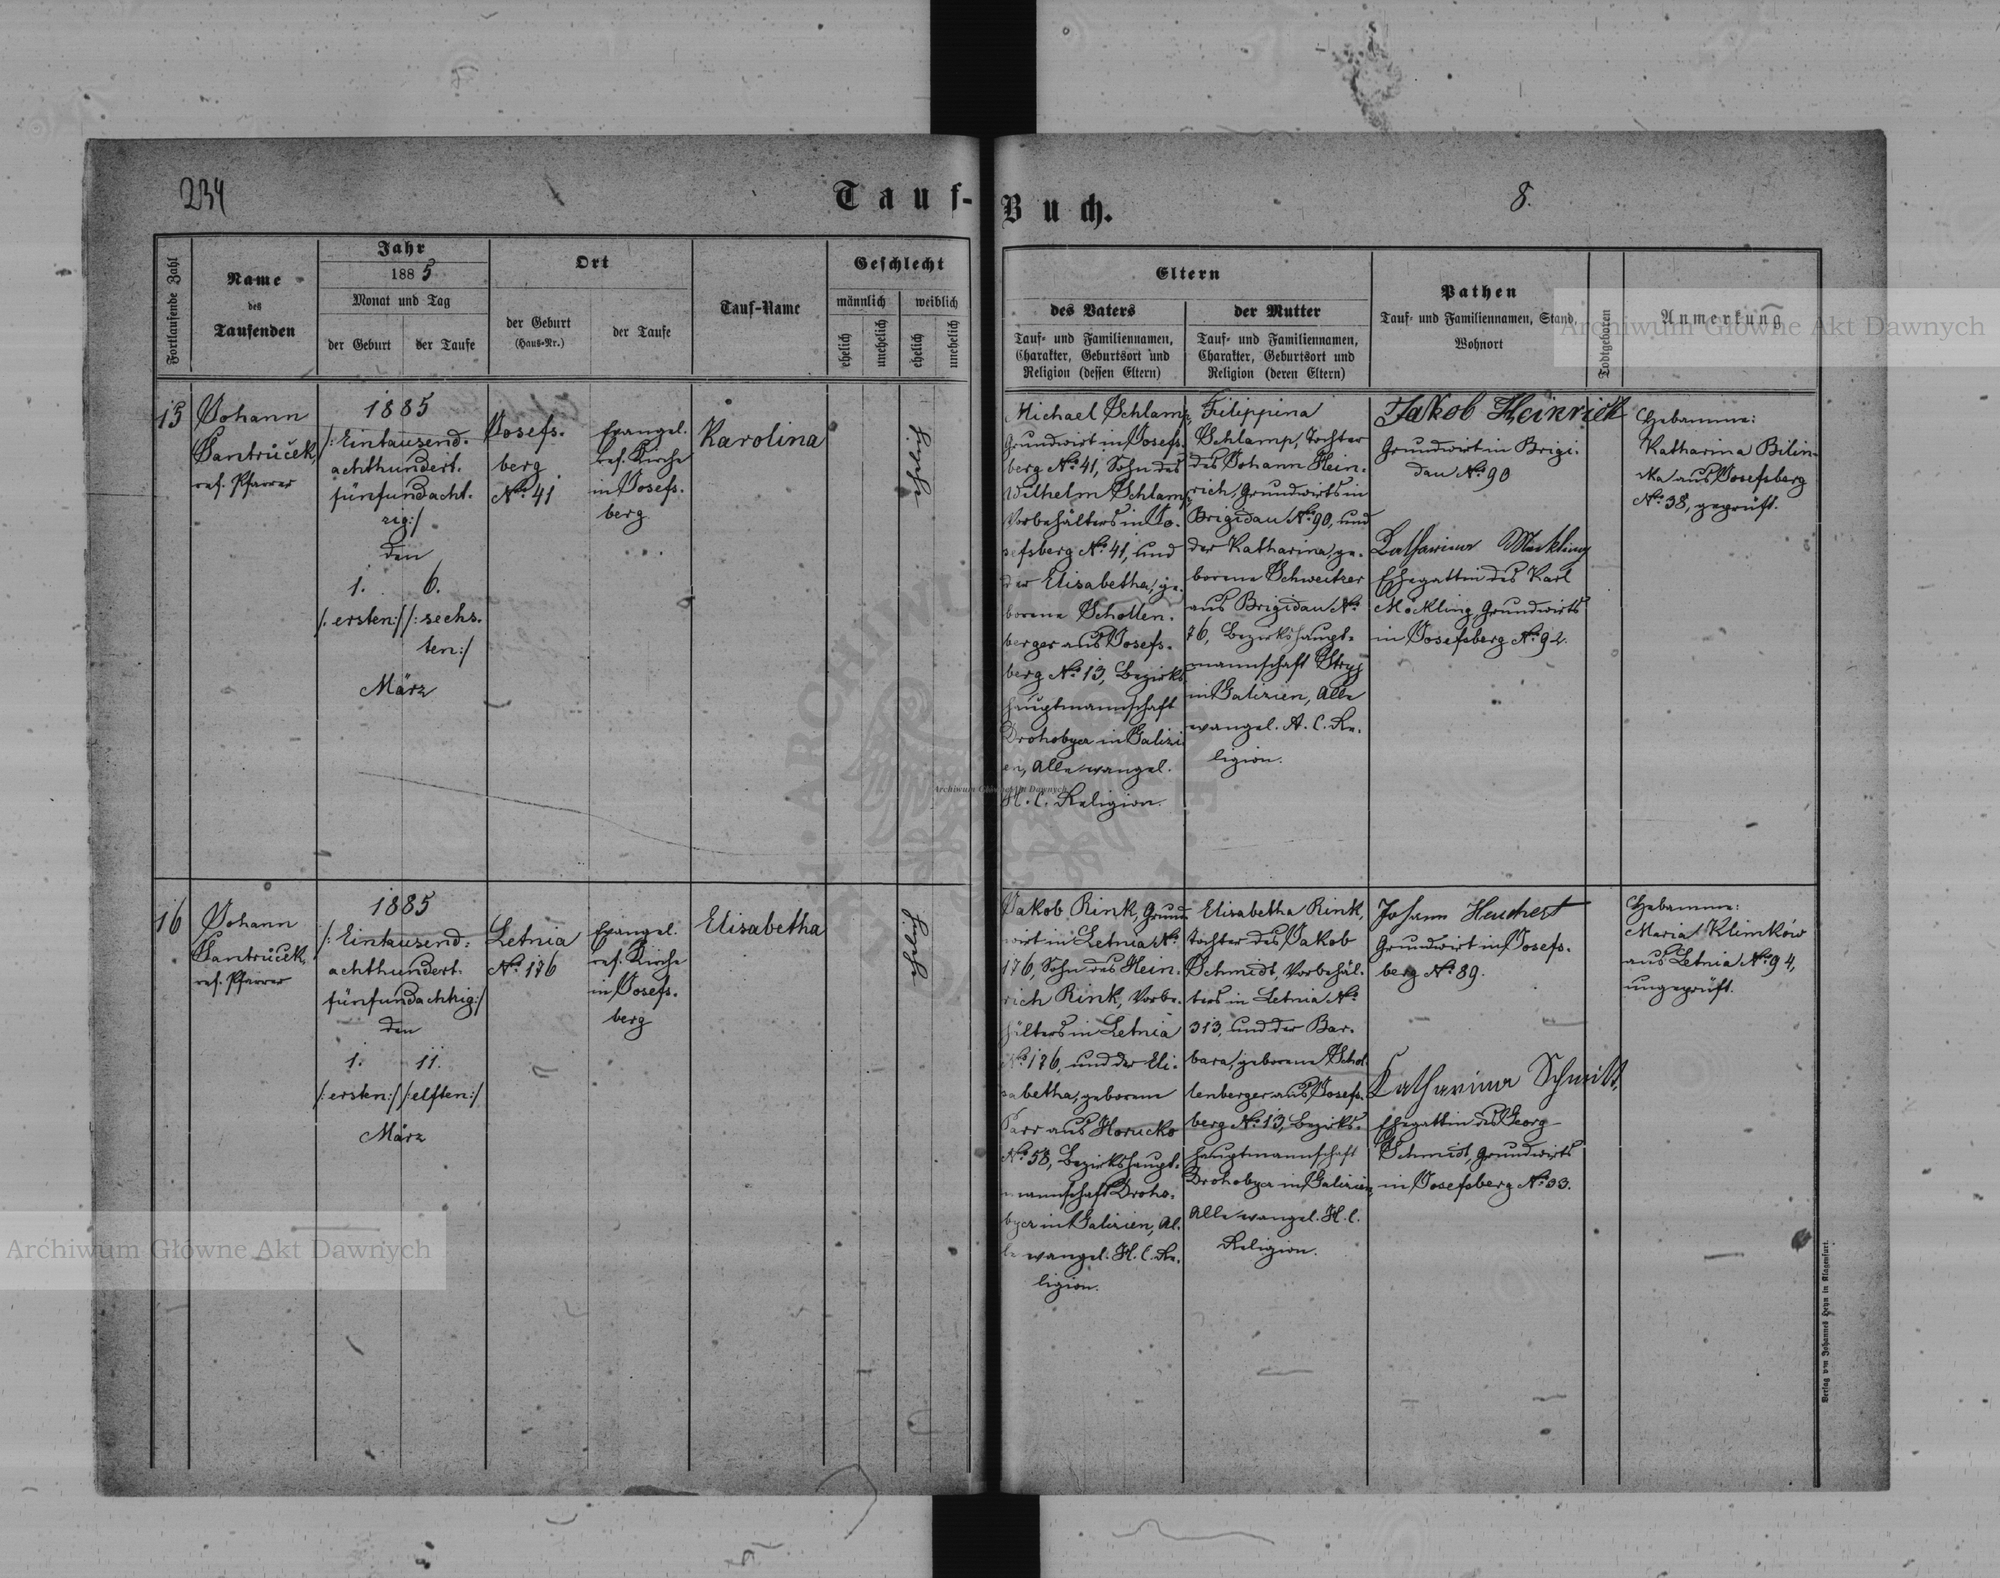 234
Tauf-
Buch.
8.
Fortlaufende Zahl
Name
des
Taufenden
Jahr
1885
Monat und Tag
der Geburt
der Taufe
Ort
der Geburt
(Haus-Nr.)
der Taufe
Tauf-Name
Geschlecht
männlich
weiblich
ehelich
unehelich
ehelich
unehelich
Eltern
des Vaters
Tauf- und Familiennamen,
Charakter, Geburtsort und
Religion (dessen Eltern)
der Mutter
Tauf- und Familiennamen,
Charakter, Geburtsort und
Religion (deren Eltern)
Pathen
Tauf- und Familiennamen, Stand,
Wohnort
Todtgeboren
Anmerkung
15
Johann
Jantruček,
ref. Pfarrer
1885
/: Eintausend-
achthundert-
fünfundacht-
zig:/
den
1. 6.
/: ersten:/ /: sechs-
ten:/
März
Josefs-
berg
No. 41
Evangel.
ref. Kirche
in Josefs-
berg
Karolina
ehelich
Michael Schlamp,
Grundwirt in Josefs-
berg No. 41, Sohn des
Wilhelm Schlamp,
Vorbehälters in Jo-
sefsberg No. 41, und
der Elisabetha, ge-
borene Schollen-
berger aus Josefs-
berg No. 13, Bezirks-
hauptmannschaft
Drohobycz in Galizi-
en, Alle evangel.
H. C. Religion.
Filippina
Schlamp, Tochter
des Johann Hein-
rich, Grundwirts in
Brigidau No. 90, und
der Katharina, ge-
borene Schweitzer
aus Brigidau No.
76, Bezirkshaupt-
mannschaft Stryj
in Galizien, Alle
evangel. A. C. Re-
ligion.
Jakob Heinrich
Grundwirt in Brigi-
dau No. 90
Katharina Mekling
Ehegattin des Karl
Möckling, Grundwirts
in Josefsberg No. 92.
Hebamme:
Katharina Bilin-
ska aus Josefsberg
No. 38, geprüft.
16
Johann
Jantruček,
ref. Pfarrer
1885
/: Eintausend-
achthundert-
fünfundachtzig:/
den
1. 11.
/: ersten:/ /: elften:/
März
Letnia
No. 176
Evangel.
ref. Kirche
in Josefs-
berg
Elisabetha
ehelich
Jakob Rink, Grund-
wirt in Letnia No.
176, Sohn des Hein-
rich Rink, Vorbe-
hälters in Letnia
No. 176, und der Eli-
sabetha, geborene
aus Horucko
No. 58, Bezirkshaupt-
mannschaft Droho-
bycz in Galizien, Al-
le evangel. H. C. Re-
ligion.
Elisabetha Rink,
Tochter des Jakob
Schmidt, Vorbehäl-
ters in Letnia No.
313, und der Bar-
bara, geborene Schol-
lenberger aus Josefs-
berg No. 13, Bezirks-
hauptmannschaft
Drohobycz in Galizien,
Alle evangel. H. C.
Religion.
Johann Heuchert
Grundwirt in Josefs-
berg No. 89.
Katharina Schmitt,
Ehegattin des Georg
Schmidt, Grundwirts
in Josefsberg No. 33.
Hebamme:
Maria Klimków
aus Letnia No. 94,
ungeprüft.
Verlag von Johannes Heyn in Klagenfurt.
Archiwum Główne Akt Dawnych
Archiwum Główne Akt Dawnych
Archiwum Główne Akt Dawnych